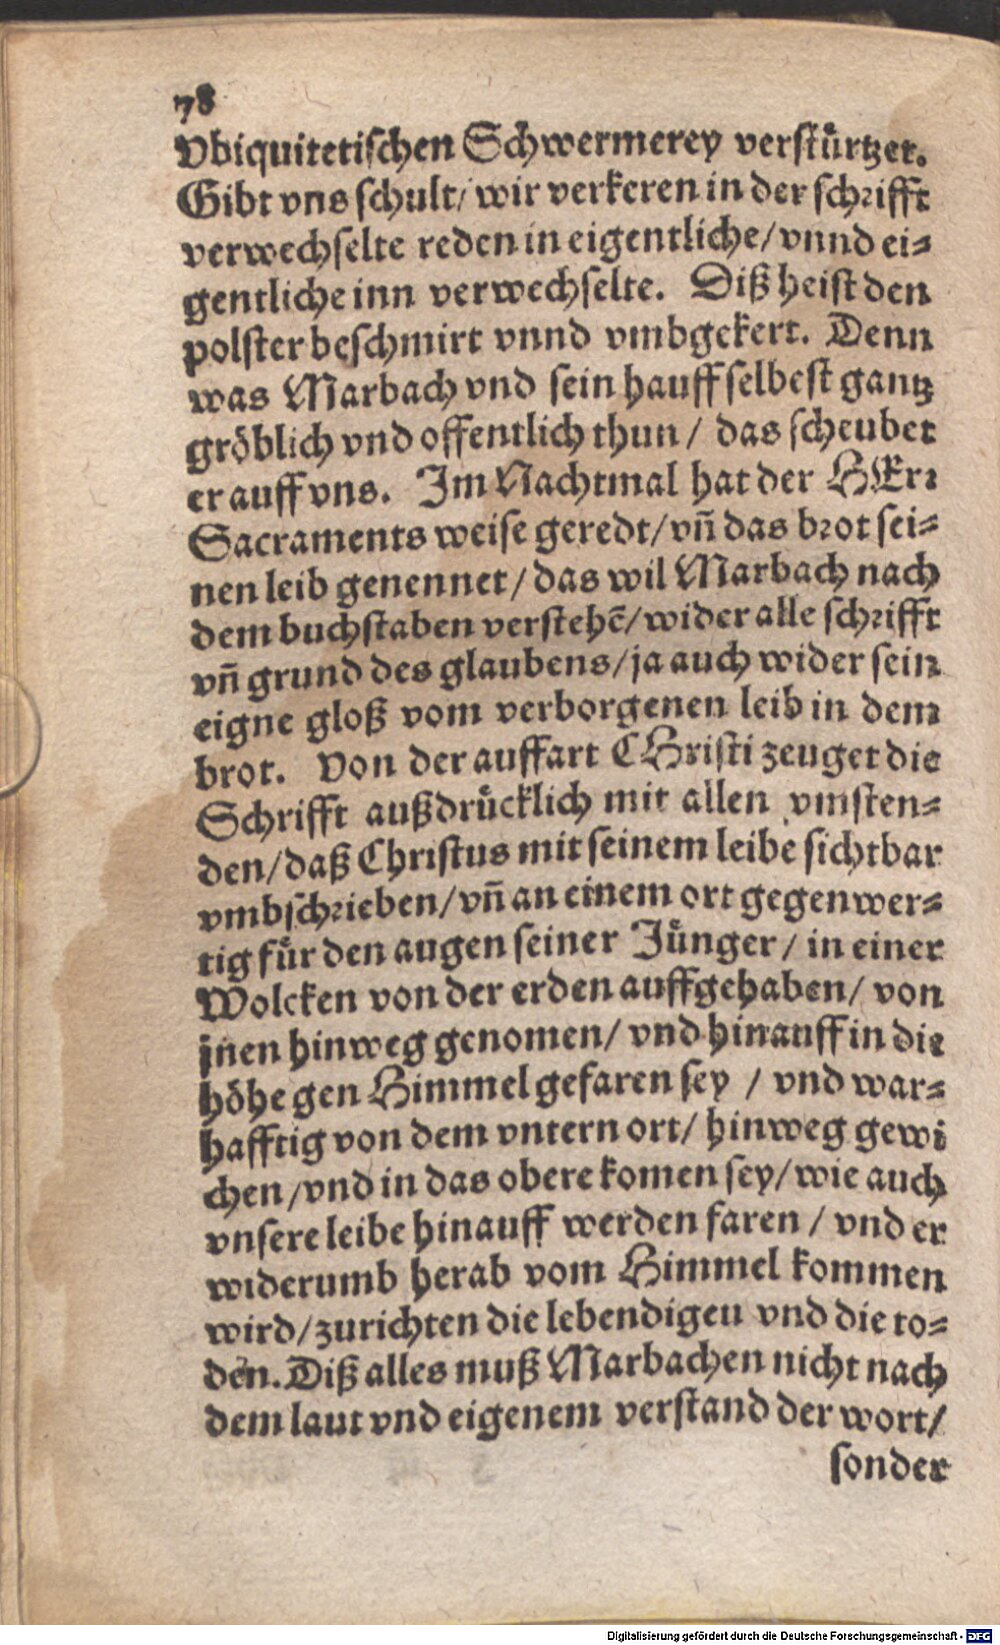 78
Vbiquitetischen Schwermerey verstürtzet.
Gibt vns schult/ wir verkeren in der schrifft
verwechselte reden in eigentliche/ vnnd ei-
gentliche inn verwechselte. Diß heist den
polster beschmirt vnnd vmbgekert. Denn
was Marbach vnd sein hauff selbest gantz
gröblich vnd offentlich thun / das scheubet
er auff vns. Im Nachtmal hat der HErr
Sacraments weise geredt/ vñ das brot sei-
nen leib genennet/ das wil Marbach nach
dem buchstaben verstehẽ/ wider alle schrifft
vñ grund des glaubens/ ja auch wider sein
eigne gloß vom verborgenen leib in dem
brot. Von der auffart CHristi zeuget die
Schrifft außdrücklich mit allen vmsten-
den/ daß Christus mit seinem leibe sichtbar
vmbschrieben/ vñ an einem ort gegenwer-
tig für den augen seiner Jünger / in einer
Wolcken von der erden auffgehaben/ von
jnen hinweg genomen/ vnd hinauff in die
höhe gen Himmel gefaren sey / vnd war-
hafftig von dem vntern ort/ hinweg gewi
chen/ vnd in das obere komen sey/ wie auch
vnsere leibe hinauff werden faren / vnd er
widerumb herab vom Himmel kommen
wird/ zurichten die lebendigeu vnd die to-
den. Diß alles muß Marbachen nicht nach
dem laut vnd eigenem verstand der wort/
sonder
Digitalisierung gefördert durch die Deutsche Forschungsgemeinschaft - DFG